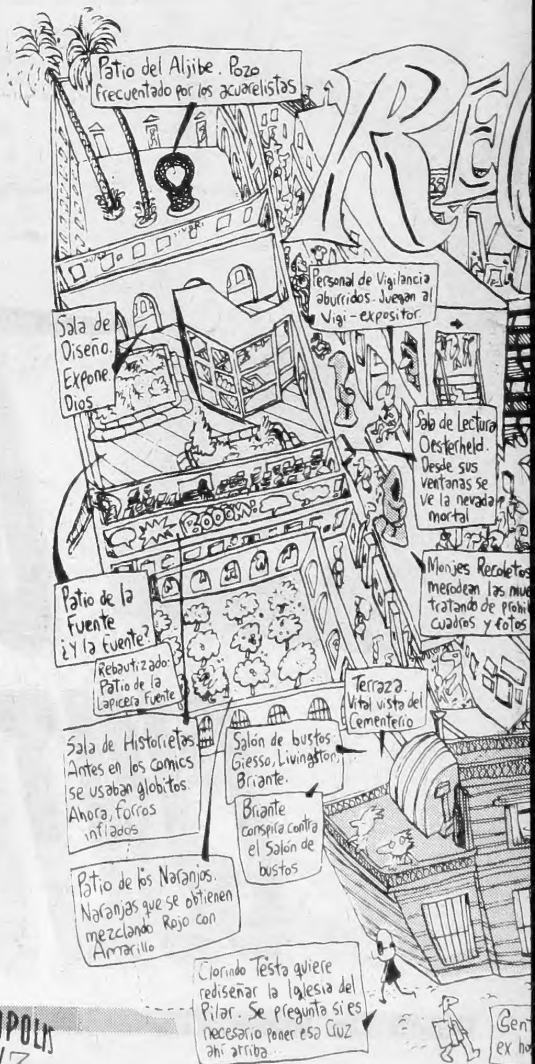 Patio del Aljibe. Pozo
frecuentado por los acuarelistas
REC
Personal de Vigilancia
aburridos. Juegan al
Vigi-expositor.
Sala de
Diseño.
Expone.
Dios
Sala de Lectura
Oesterheld.
Desde sus
ventanas se
ve la nevada
mortal
BOOOM
Monjes Recoletos
merodean las
tratando de
cuadros y fotos
Patio de la
Fuente
¿Y la Fuente?
Rebautizado:
Patio de la
Lapicera Fuente
Terraza.
Vital vista del
Cementerio
Sala de Historietas.
Antes en los comics
se usaban globitos.
Ahora, forros
inflados
Salón de bustos:
Giesso, Livingston,
Briante.
Briante
conspira contra
el Salón de
bustos
Patio de los Naranjos.
Naranjas que se obtienen
mezclando Rojo con
Amarillo
Clorindo Testa quiere
rediseñar la Iglesia del
Pilar. Se pregunta si es
necesario poner esa Cruz
ahí arriba...
Gen
ex